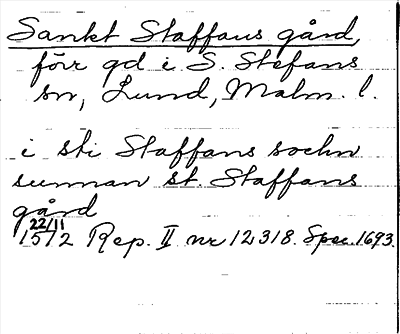 Sankt Staffans gård,
förr gd i S. Stefans
sn, Lund, Malm. l.
i sti Staffans sochn
sunnan st. Staffans
gård
22/11
1512 Rep. II nr 12318. Spec. 1693.